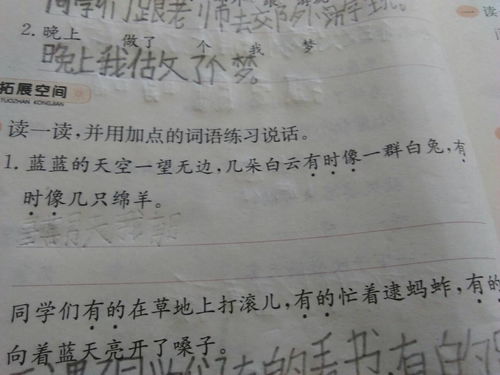 同学们跟老师去交
2. 晚上 做了 个 我 梦
晚上我估文了个梦。
拓展空间
TUOZHAN KONGJIAN
读一读,并用加点的词语练习说话。
1. 蓝蓝的天空一望无边,几朵白云有时像一群白兔,有
时像几只绵羊。
同学们有的在草地上打滚儿,有的忙着逮蚂蚱,有的
向着蓝天亮开了嗓子。
的看书,有的
一 读